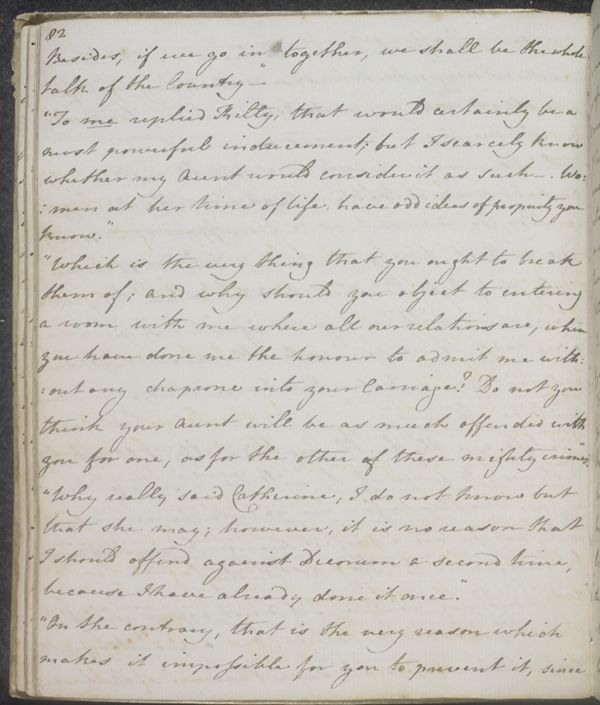 82
Besides, if we go in together, we shall be the whole
talk of the Country—"
"To me replied Kitty, that would certainly be a
most powerful inducement; but I scarcely know
whether my Aunt would consider it as such—. Wo:
:men at her time of life, have odd ideas of propriety you
know."
"Which is the very thing that you ought to break
them of; and why should you object to entering
a room with me where all our relations are, when
you have done me the honour to admit me with:
:out any chaprone into your Carriage? Do not you
think your Aunt will be as much offended with
you for one, as for the other of these mighty crimes"?
"Why really said Catherine, I do not know but
that she may; however, it is no reason that
I should offend against Decorum a second time,
because I have already done it once."
"On the contrary, that is the very reason which
makes it impossible for you to prevent it, since